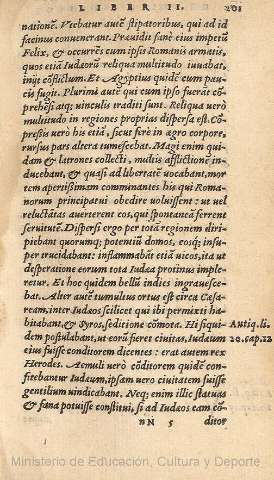 LIBER II. 201
nationē. Vtebatur autē stipatoribus, qui ad id
facinus conuenerant. Præuidit sanè eius impetū
Felix, & occurrēs cum ipsis Romanis armatis,
quos etiā Iudæorū reliqua multitudo iuuabat,
inijt cōflictum. Et Ægyptius quidē cum pau-
cis fugit. Plurimi autē qui cum ipso fuerāt cō-
prehēsi atq; uinculis traditi sunt. Reliqua uerò
multitudo in regiones proprias dispersa est. Cō-
pressis uerò his etiā, sicut fere in ægro corpore,
rursus pars altera tumescebat. Magi enim qui-
dam & latrones collecti, multis afflictionē in-
ducebant, & quasi ad libertatē uocabant, mor-
tem apertissimam comminantes his qui Roma-
norum principatui obedire uoluissent: ut uel
reluctātas auerterent eos, qui spontaneā ferrent
seruitutē. Dispersi ergo per totā regionem diri-
piebant quorumq; potentiū domos, eosq; insu-
per trucidabant: inflammabāt etiā uicos, ita ut
desperatione eorum tota Iudæa protinus imple-
retur. Et hoc quidem bellū indies ingrauesce-
bat. Alter autē tumultus ortus est circa Cæsa-
ream, inter Iudæos scilicet qui ibi permixti ha-
bitabant, & Syros, seditione cōmota. Hi siqui-
dem postulabant, ut eorū fieret ciuitas, Iudæum
eius fuisse conditorem dicentes: erat autem rex
Herodes. Aemuli uerò cōditorem quidē con-
fitebantur Iudæum, ipsam uero ciuitatem fuisse
gentilium uindicabant. Neq; enim illic statuas
& fana potuisse constitui, si ad Iudæos eam cō-
Antiq. li.
20. cap. 12
nN 5 ditor
Ministerio de Educación, Cultura y Deporte